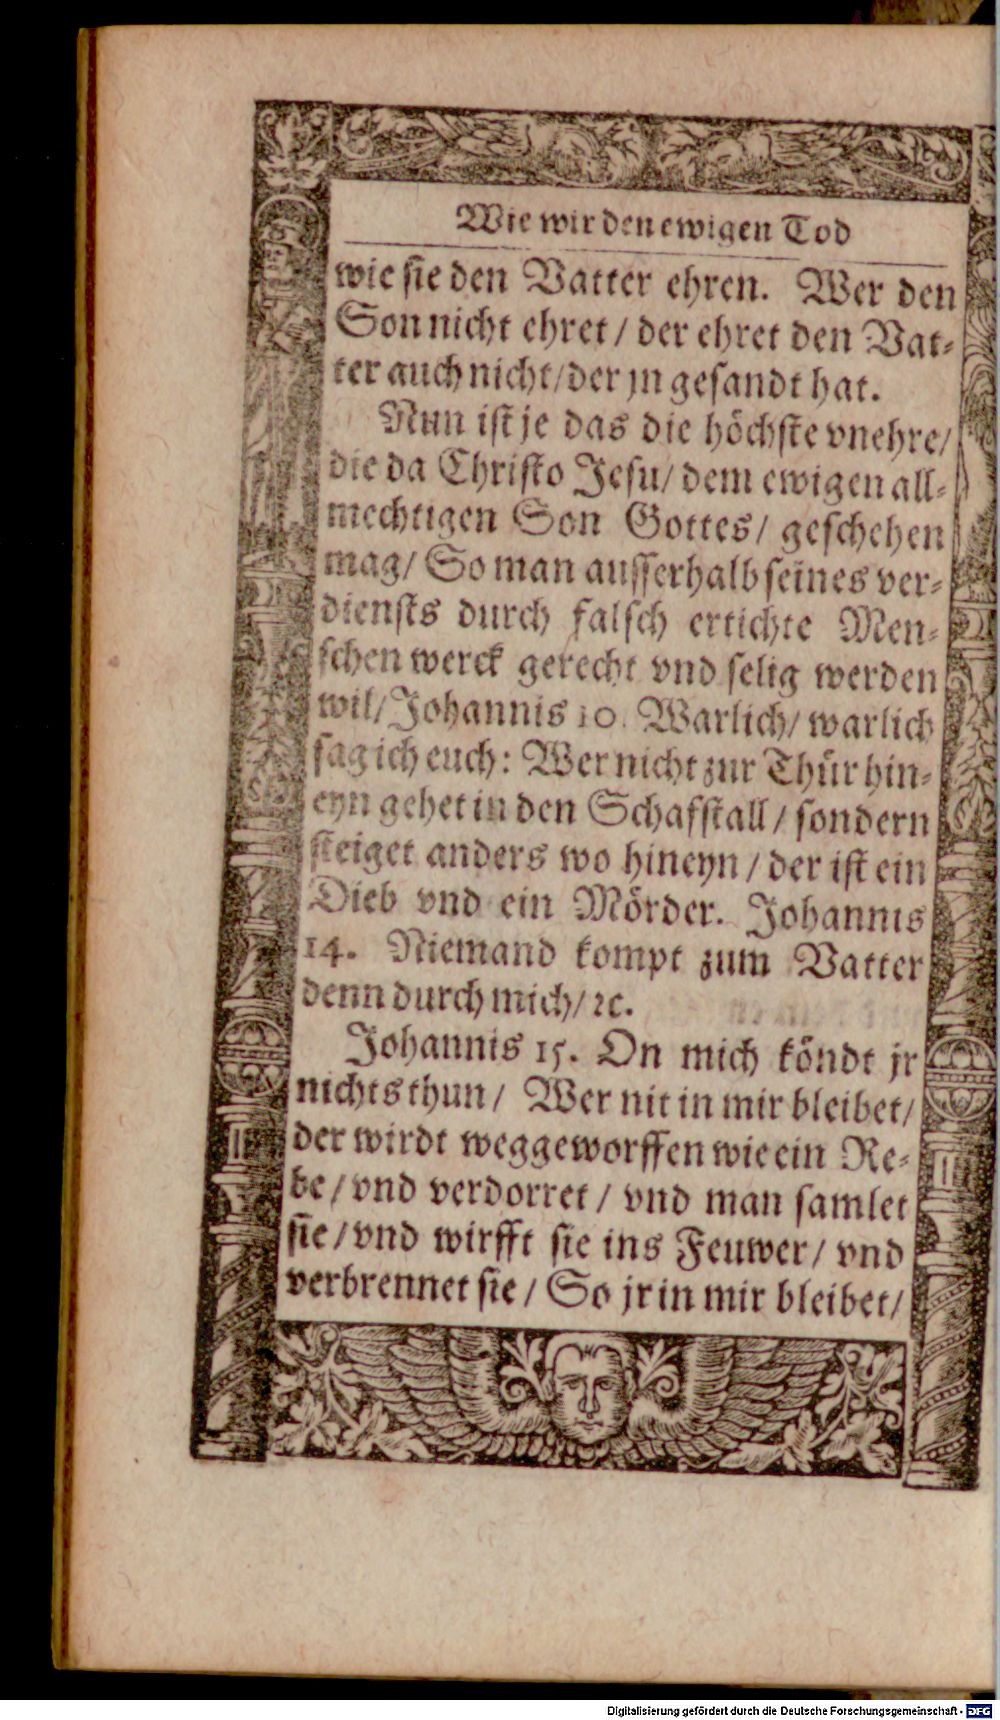 Wie wir den ewigen Tod
wie sie den Vatter ehren. Wer den
Son nicht ehret / der ehret den Vat⸗
ter auch nicht / der jn gesandt hat.
Nun ist je das die höchste vnehre /
die da Christo Jesu / dem ewigen all⸗
mechtigen Son Gottes / geschehen
mag / So man ausserhalb seines ver⸗
diensts durch falsch ertichte Men⸗
schen werck gerecht vnd selig werden
wil / Johannis 10. Warlich / warlich
sag ich euch: Wer nicht zur Thür hin⸗
eyn gehet in den Schafstall / sondern
steiget anders wo hineyn / der ist ein
Dieb vnd ein Mörder. Johannis
14. Niemand kompt zum Vatter
denn durch mich / ꝛc.
Johannis 15. On mich köndt jr
nichts thun / Wer nit in mir bleibet /
der wirdt weggeworffen wie ein Re⸗
be / vnd verdorret / vnd man samlet
sie / vnd wirfft sie ins Feuwer / vnd
verbrennet sie / So jr in mir bleibet /
Digitalisierung gefördert durch die Deutsche Forschungsgemeinschaft - DFG